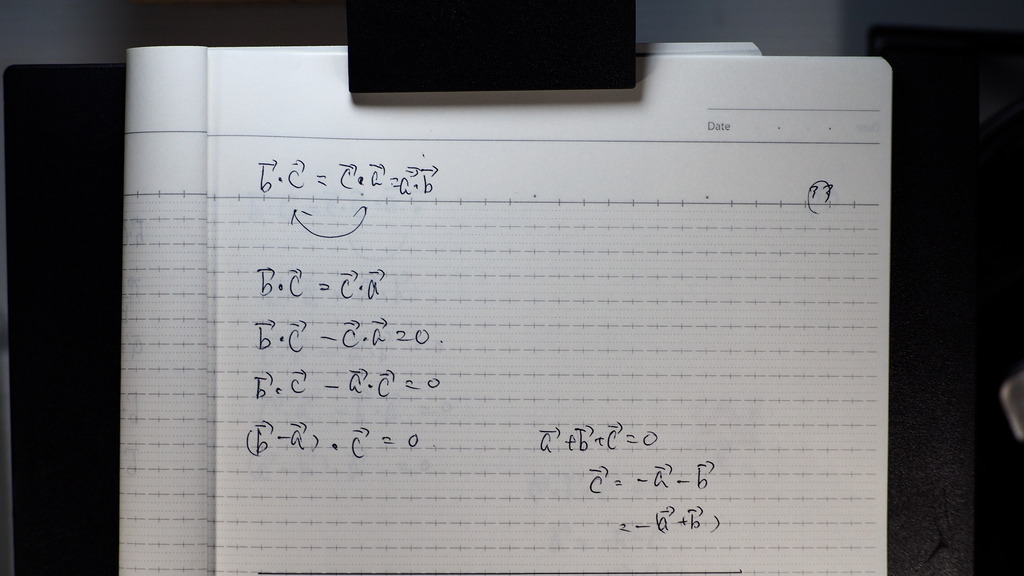 Date
b⃗·c⃗ = c⃗·a⃗ = a⃗·b⃗
b⃗·c⃗ = c⃗·a⃗
b⃗·c⃗ - c⃗·a⃗ = 0.
b⃗·c⃗ - a⃗·c⃗ = 0
(b⃗ - a⃗)·c⃗ = 0
a⃗ + b⃗ + c⃗ = 0
c⃗ = -a⃗ - b⃗
= -(a⃗ + b⃗)